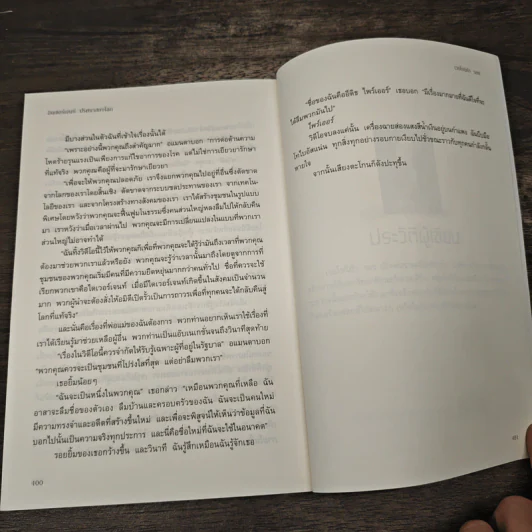 มีบางส่วนในตัวฉันที่เข้าใจเรื่องนั้นได้
"เพราะอย่างนี้พวกคุณถึงสำคัญมาก" อแมนดาบอก "การต่อต้านความ
โหดร้ายรุนแรงเป็นเพียงการแก้ไขอาการของโรค แต่ไม่ใช่การเยียวยารักษา
ที่แท้จริง พวกคุณคือผู้ที่จะมารักษาเยียวยา
"เพื่อจะให้พวกคุณปลอดภัย เราจึงแยกพวกคุณไปอยู่ที่อื่นซึ่งตัดขาด
จากโลกของเราโดยสิ้นเชิง ตัดขาดจากระบบชลประทานของเรา จากเทคโน-
โลยีของเรา และจากโครงสร้างทางสังคมของเรา เราได้สร้างชุมชนในรูปแบบ
พิเศษโดยหวังว่าพวกคุณจะฟื้นฟูมโนธรรมซึ่งคนส่วนใหญ่หลงลืมไปได้กลับคืน
มา เราหวังว่าเมื่อเวลาผ่านไป พวกคุณจะมีการเปลี่ยนแปลงในแบบที่พวกเรา
ส่วนใหญ่ไม่อาจทำได้
"ฉันทิ้งวิดีโอนี้ไว้ให้พวกคุณก็เพื่อที่พวกคุณจะได้รู้ว่ามันถึงเวลาที่พวกคุณ
ต้องมาช่วยพวกเราแล้วหรือยัง พวกคุณจะรู้ว่าเวลานั้นมาถึงโดยดูจากการที่
ชุมชนของพวกคุณเริ่มมีคนที่มีความยืดหยุ่นมากกว่าคนทั่วไป ชื่อที่ควรจะใช้
เรียกพวกเขาคือไดเวอร์เจนท์ เมื่อมีไดเวอร์เจนท์เกิดขึ้นในสังคมเป็นจำนวน
มาก
โลกที่แท้จริง"
และนั่นคือเรื่องที่พ่อแม่ของฉันต้องการ พวกท่านอยากเห็นเราใช้เรื่องที่
เราได้เรียนรู้มาช่วยเหลือผู้อื่น พวกท่านเป็นแอ๊บเนเกชั่นจนถึงวินาทีสุดท้าย
"เรื่องในวิดีโอนี้ควรจำกัดให้รับรู้เฉพาะผู้ที่อยู่ในรัฐบาล" อแมนดาบอก
"พวกคุณควรจะเป็นชุมชนที่โปร่งใสที่สุด แต่อย่าลืมพวกเรา"
เธอยิ้มน้อยๆ
"ฉันจะเป็นหนึ่งในพวกคุณ" เธอกล่าว "เหมือนพวกคุณที่เหลือ ฉัน
อาสาจะลืมชื่อของตัวเอง ลืมบ้านและครอบครัวของฉัน ฉันจะเป็นคนใหม่
มีความทรงจำและอดีตที่สร้างขึ้นใหม่ และเพื่อจะพิสูจน์ให้เห็นว่าข้อมูลที่ฉัน
บอกไปนั้นเป็นความจริงทุกประการ และนี่คือชื่อใหม่ที่ฉันจะใช้ในอนาคต"
รอยยิ้มของเธอกว้างขึ้น และวินาที ฉันรู้สึกเหมือนฉันรู้จักเธอ
400
"ชื่อของฉันคืออีดิธ ไพร์เออร์" เธอบอก "มีเรื่องมากมายที่ฉันดีใจที่จะ
ได้ลืมพวกมันไป"
ไพร์เออร์
วิดีโอจบลงแค่นั้น
หายใจ
จากนั้นเสียงตะโกนก็ดังประทุขึ้น